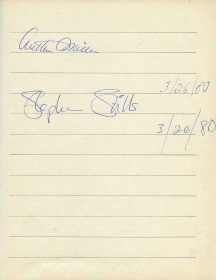 Arthur Miller
3/26/80
Stephen Stills
3/26/80